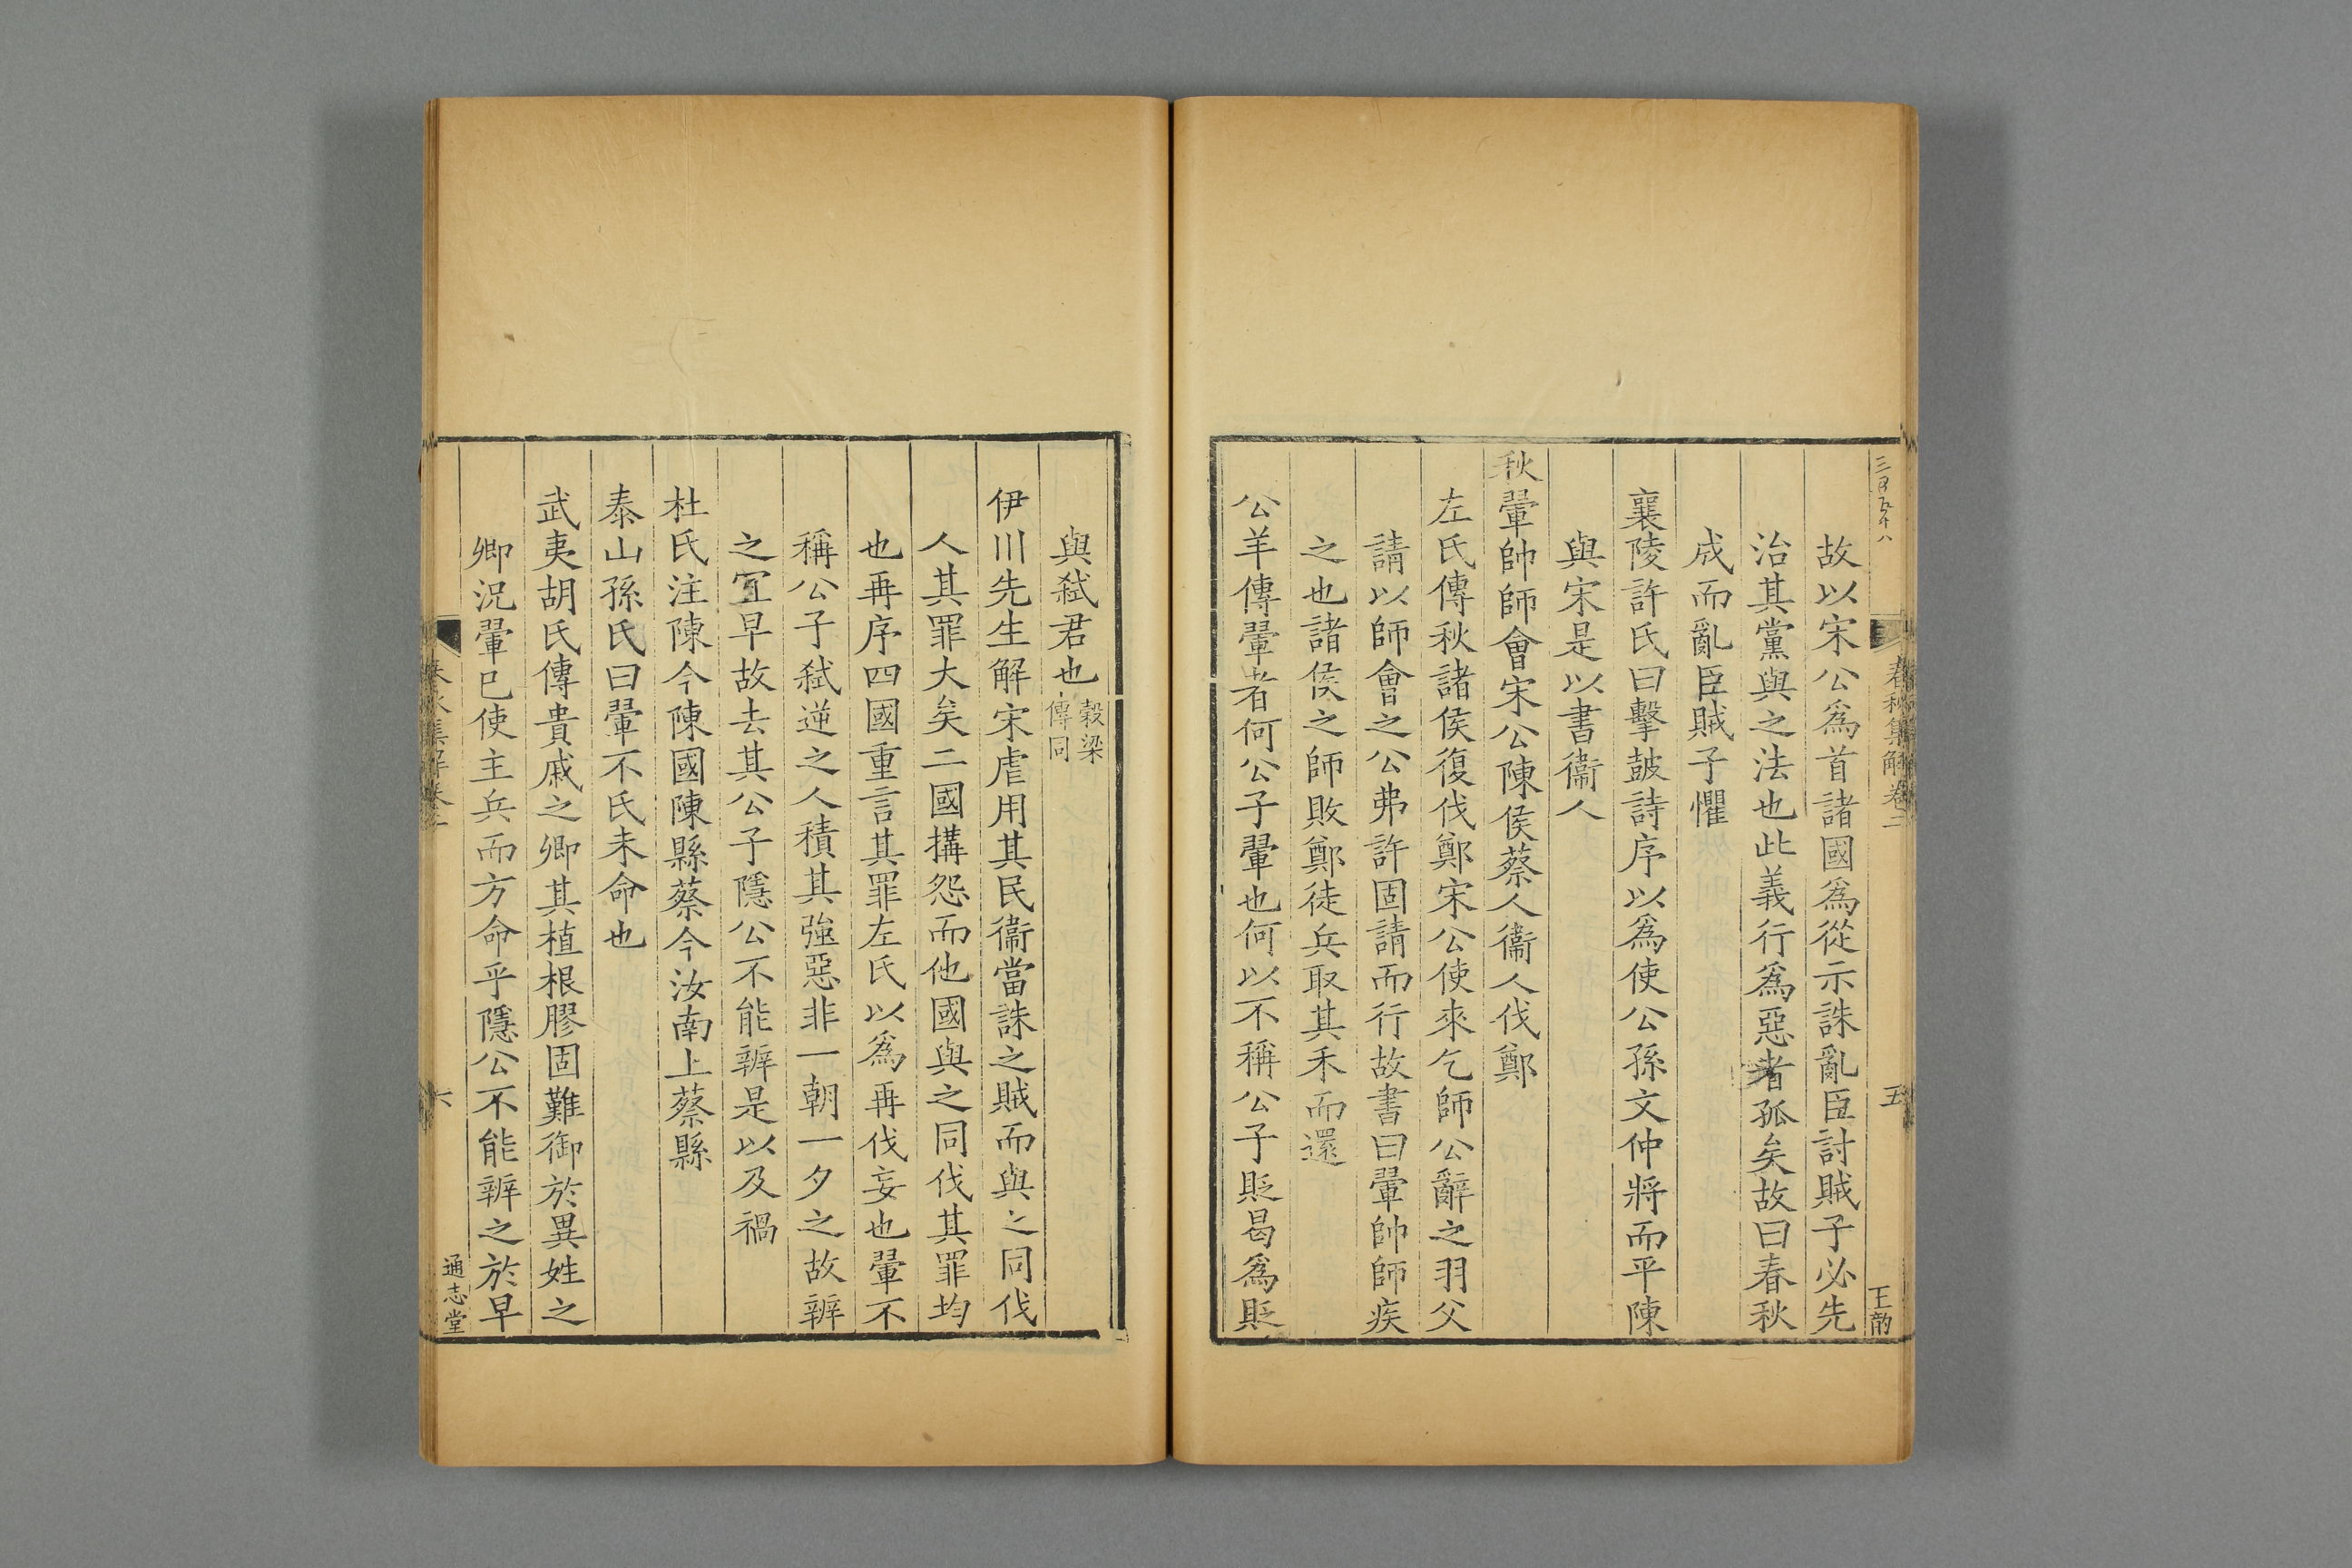 三百五十八
春秋集解卷二
五
王
故以宋公爲首諸國爲從示誅亂臣討賊子必先
治其黨與之法也此義行爲惡者孤矣故曰春秋
成而亂臣賊子懼
襄陵許氏曰擊鼓詩序以爲使公孫文仲將而平陳
與宋是以書衞人
秋翬帥師會宋公陳侯蔡人衞人伐鄭
左氏傳秋諸侯復伐鄭宋公使來乞師公辭之羽父
請以師會之公弗許固請而行故書曰翬帥師疾
之也諸侯之師敗鄭徒兵取其禾而還
公羊傳翬者何公子翬也何以不稱公子貶曷爲貶
與弑君也穀梁傳同
伊川先生解宋虐用其民衞當誅之賊而與之同伐
人其罪大矣二國搆怨而他國與之同伐其罪均
也再序四國重言其罪左氏以爲再伐妄也翬不
稱公子弑逆之人積其強惡非一朝一夕之故辨
之宜早故去其公子隱公不能辨是以及禍
杜氏注陳今陳國陳縣蔡今汝南上蔡縣
泰山孫氏曰翬不氏未命也
武夷胡氏傳貴戚之卿其植根膠固難御於異姓之
卿況翬已使主兵而方命乎隱公不能辨之於早
春秋集解卷二
六
通志堂